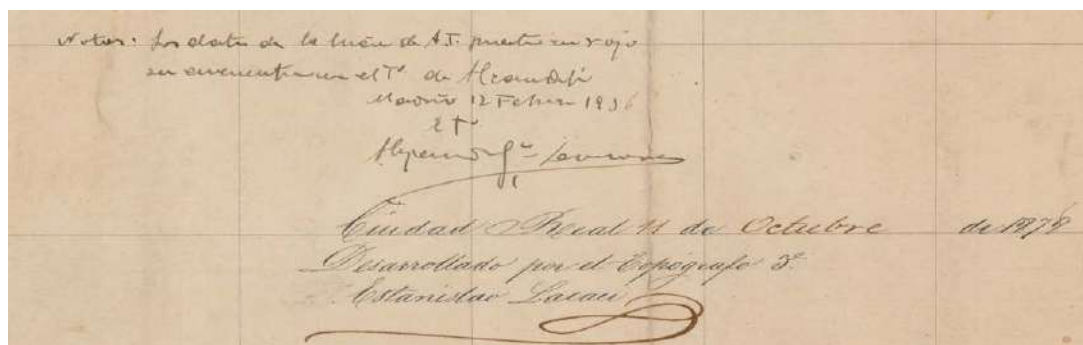 Notas: Los datos de la línea de A.T. puestos en rojo
se encuentran en el Tº de
Madrid 12 Febrero 1936
El Tº
Ciudad Real 11 de Octubre de 187
Desarrollado por el Topógrafo 3º
Estanislao Lacaci